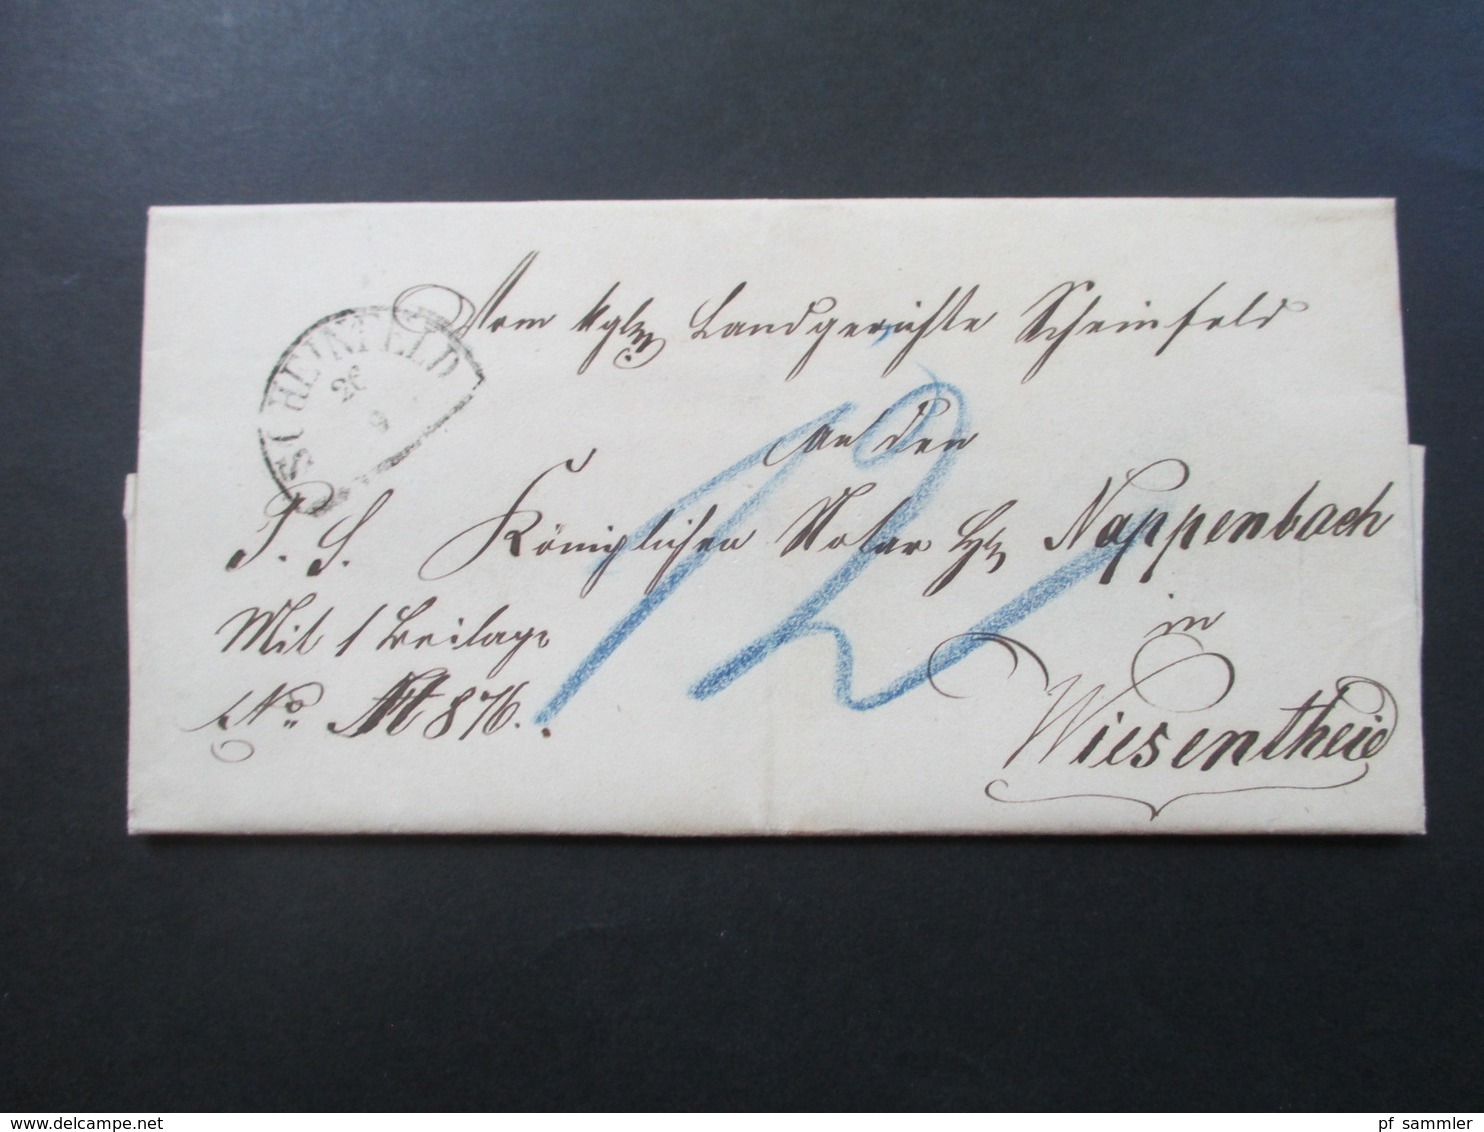 Vom kgln Landgerichte Scheinfeld
SCHEINFELD
26
9
12
an den
T. S. Königlichen Notar Hn Nappenbach
Mit 1 Beilage
in
No. 876.
Wiesentheid
www.delcampe.net
pf_sammler